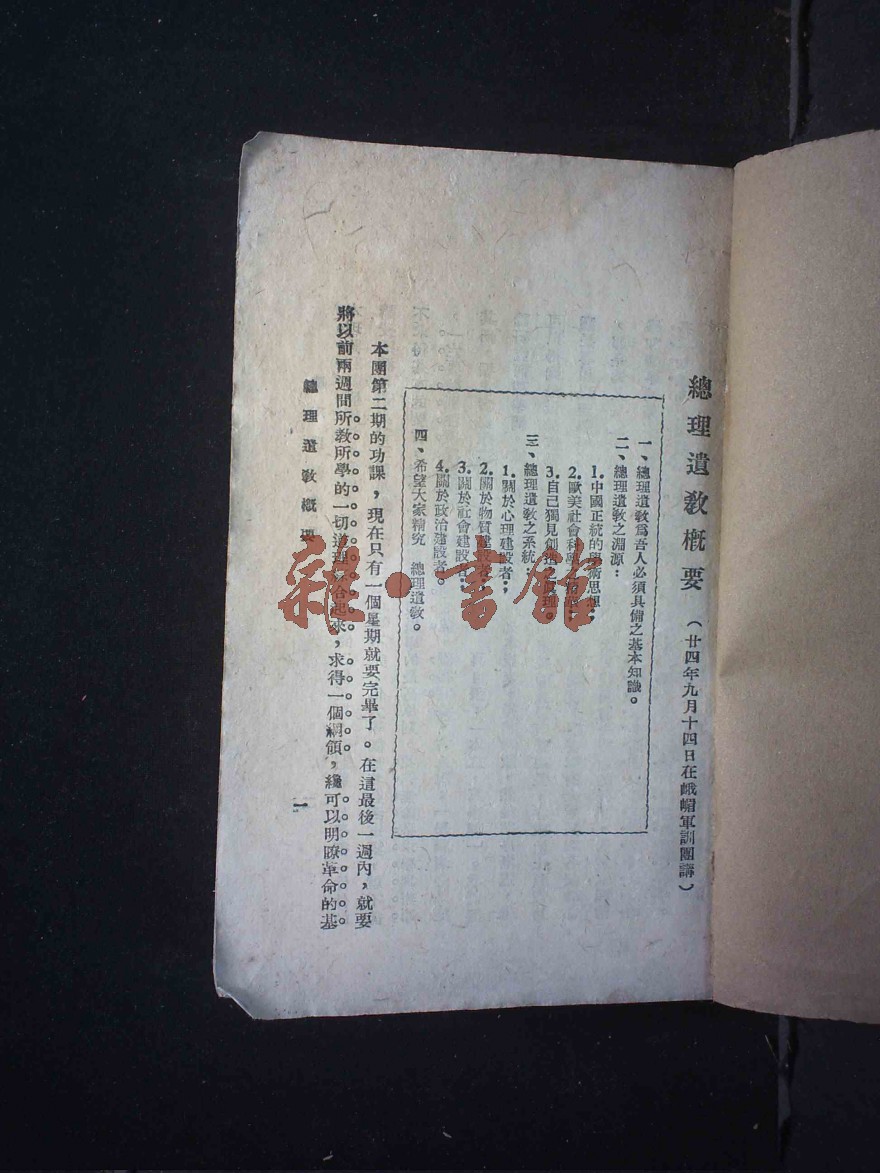 總理遺敎概要
（廿四年九月十四日在峨嵋軍訓團講）
一、總理遺敎爲吾人必須具備之基本知識。
二、總理遺敎之淵源：
1.中國正統的學術思想；
2.歐美社會科學之精華；
3.自己獨見創造之眞理。
三、總理遺敎之系統：
1.關於心理建設者；
2.關於物質建設者；
3.關於社會建設者；
4.關於政治建設者。
四、希望大家精究　總理遺敎。
本團第二期的功課，現在只有一個星期就要完畢了。在這最後一週內，就要
將以前兩週間所敎所學的一切道理綜合起來，求得一個綱領，纔可以明瞭革命的基
總理遺敎概要
一
雜·書館